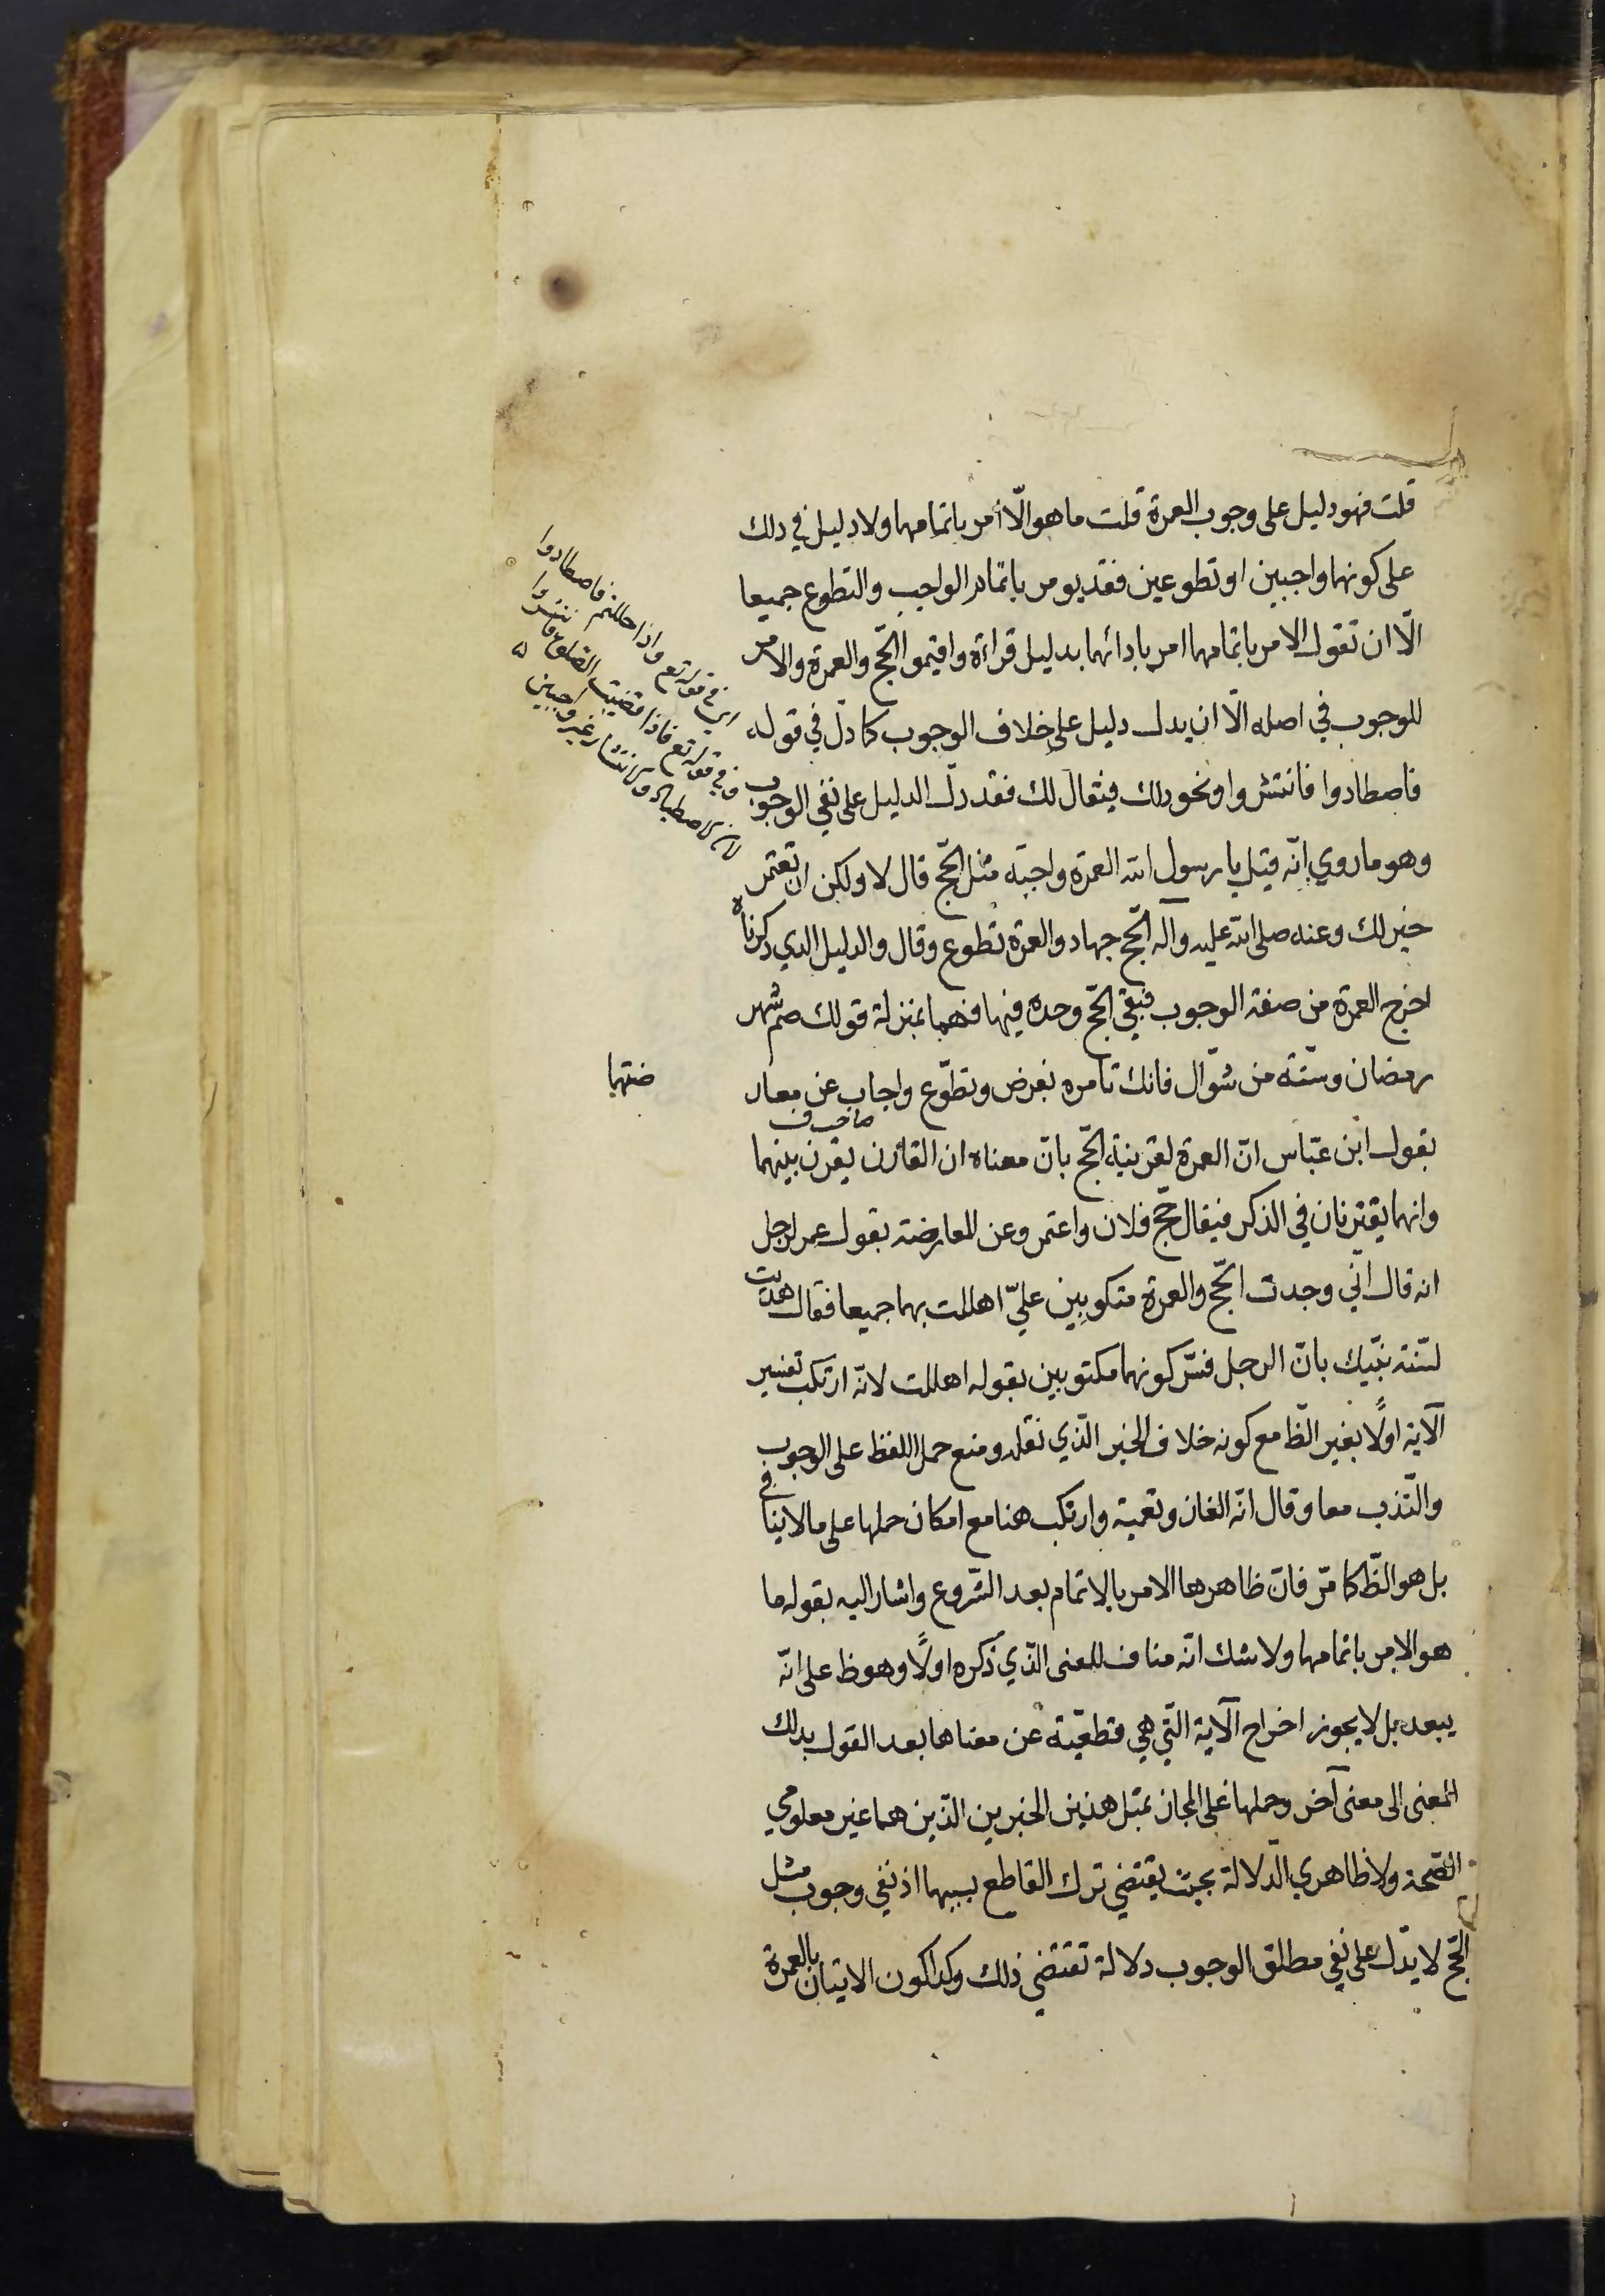 قلت فهو دليل على وجوب العمرة قلت ما هو الّا أمر باتمامها ولا دليل في دلك
على كونهما واجبين او تطوعين فقد يومر باتمام الواجب والتطوع جميعا
الّا ان تقول الامر باتمامهما امر بادائهما بدليل قراءة واقيموا الحّج والعمرة والامر
للوجوب في اصله الّا ان يدل دليل على خلاف الوجوب كما دلّ في قوله
فاصطادوا فانتشروا ونحو دلك فيقال لك فقد دلّ الدليل على نفي الوجوب
وهو ما روي انّه قيل يا رسول الله العمرة واجبة مثل الحّج قال لا ولكن ان تعتمر
خير لك وعنه صلى الله عليه وآله الحّج جهاد والعمرة تطوع وقال والدليل الدي ذكرناه
اخرج العمرة من صفة الوجوب فبقي الحّج وحده فيها فهما بمنزلة قولك صم شهر
رمضان وستّة من شوّال فانك تامره بفرض وتطوّع واجاب عن معار
ضتهما
بقول ابن عبّاس انّ العمرة لقرينة الحّج بانّ معناه ان القارن يقرن بينهما
وانهما يقترنان في الذكر فيقال حجّ فلان واعتمر وعن المعارضة بقول عمر لرجل
انه قال انّي وجدت الحّج والعمرة مكتوبين عليّ اهللت بهما جميعا فقال هديت
لسّنة نبّيك بانّ الرجل فسّر كونهما مكتوبين بقوله اهللت لانّه ارتكب تفسير
الآية اولًا بغير الظّ مع كونه خلاف الخبر الّذي نقله ومنع حمل اللفظ على الوجوب
والنّدب معا وقال انّه الغاز وتعمية وارتكب هنا مع امكان حملها على ما لا ينافي
بل هو الظّ كما مّر فانّ ظاهرها الامر بالاتمام بعد الشّروع واشار اليه بقوله ما
هو الا امر باتمامها ولا شك انّه مناف للمعنى الّذي ذكره اولًا وهو ظ على انّه
يبعد بل لا يجوز اخراج الآية الّتي هي قطعّية عن معناها بعد القول بدلك
المعنى الى معنى آخر وحملها على المجاز بمثل هذين الخبرين الّذين هما غير معلومي
الصّحة ولا ظاهري الدّلالة بحيث يقتضي ترك القاطع بسببهما اذ نفي وجوب مثل
الحّج لا يدّل على نفي مطلق الوجوب دلالة تقتضي ذلك وكدا كون الايتيان بالعمرة
اي في قوله تع واذا حللتم فاصطادوا
وفي قوله تع فاذا قضيت الصلوة فانتشروا
لان الاصطياد والانتشار غير واجبين